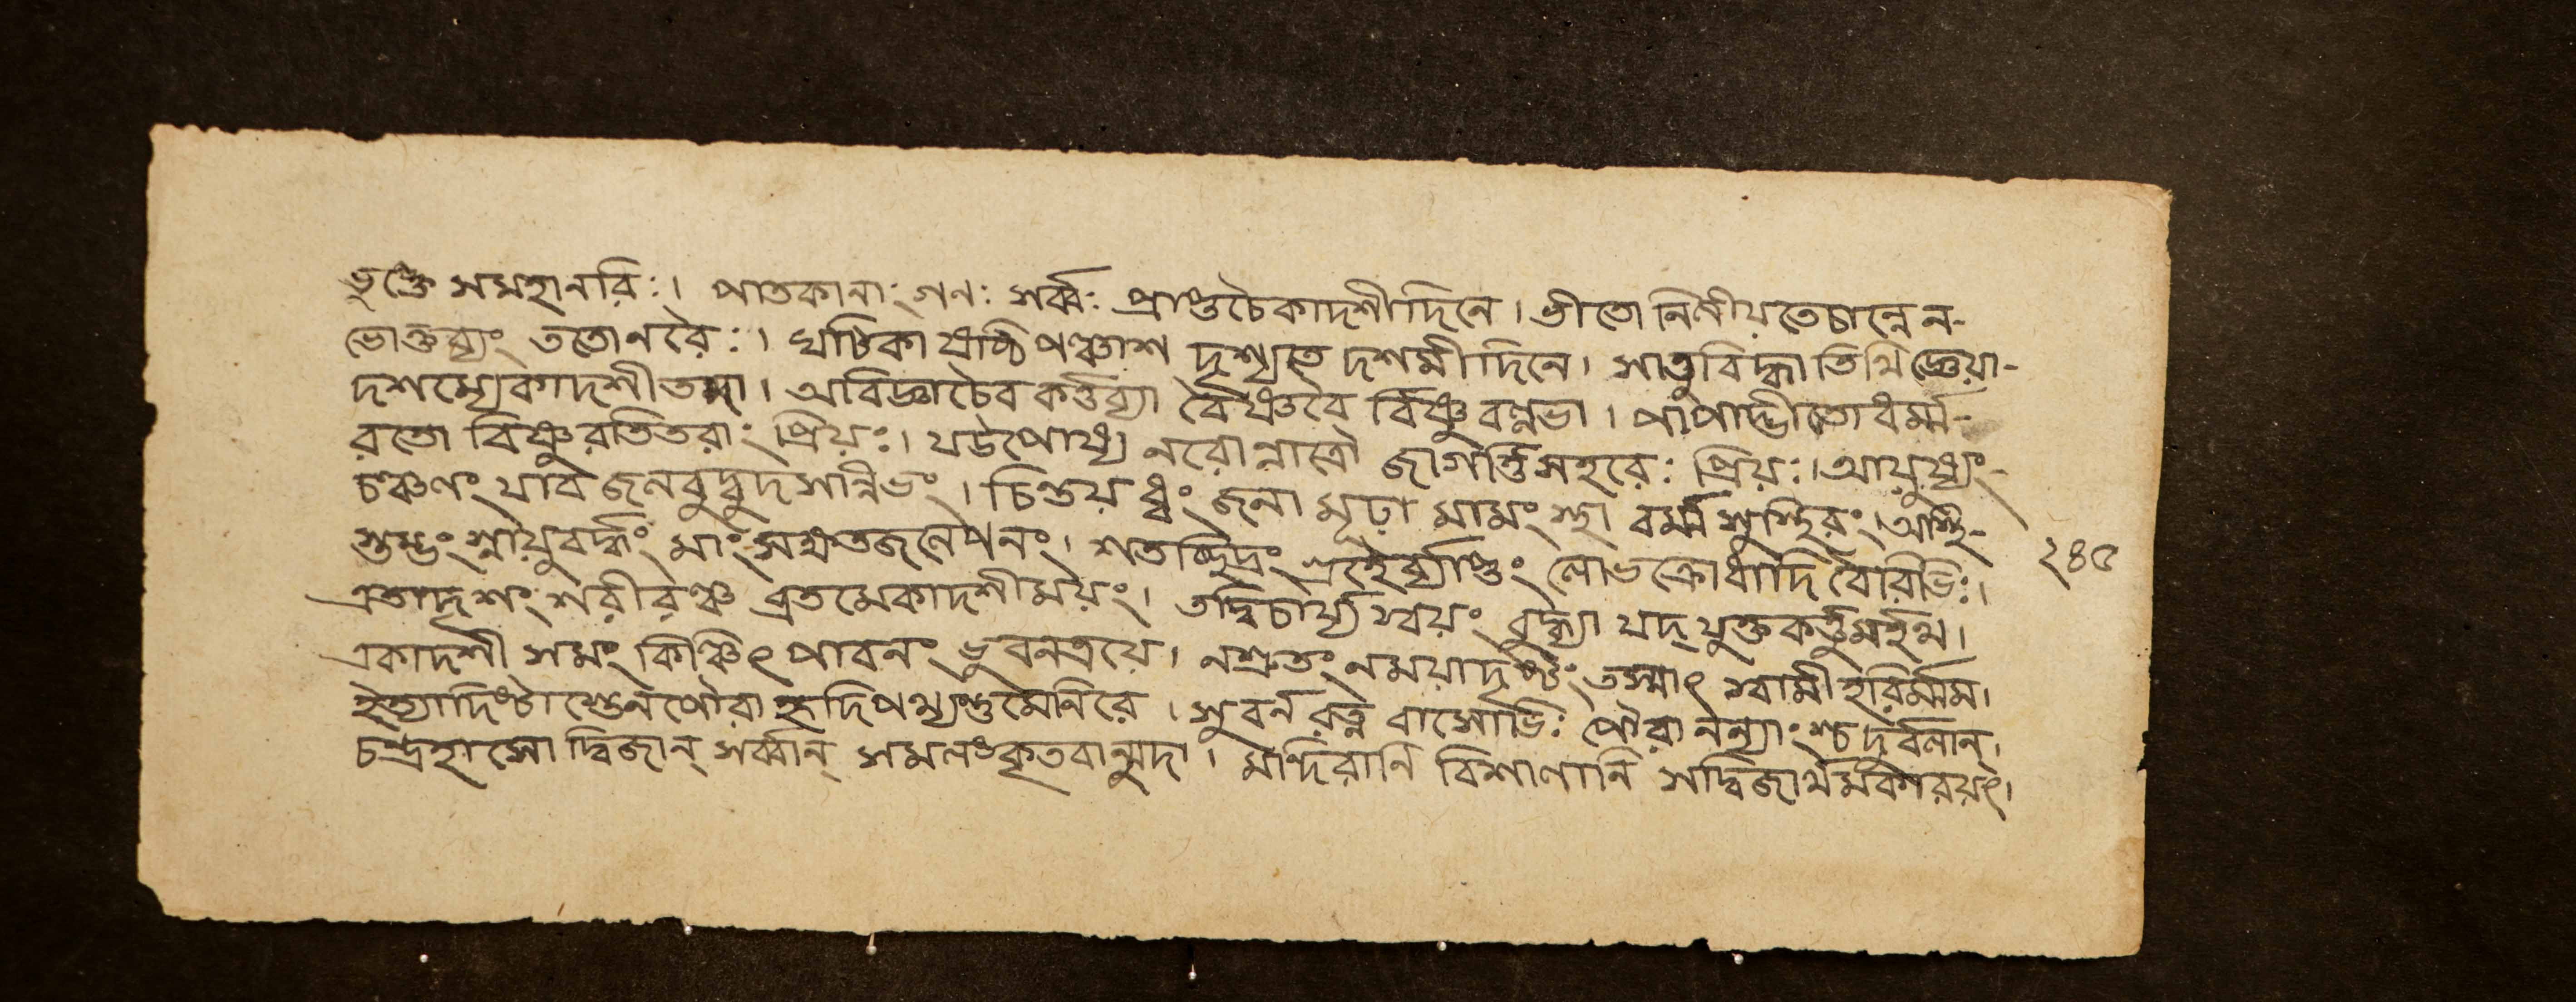 ভুঙ্ক্তে সমহানরিঃ। পাতকানাং গনঃ সর্ব্বঃ প্রাপ্তচৈকাদশীদিনে। ভীতো নিলীয়তেচান্নে ন-
ভোক্তব্যং ততোনরৈঃ। ঘটিকা ষষ্ঠি পঞ্চাশ দৃশ্যতে দশমীদিনে। সাতুবিদ্ধা তিথি র্জ্ঞেয়া-
দশম্যেকাদশীতথা। অবিদ্ধাচৈব কর্ত্তব্যা বৈষ্ণবৈ র্বিষ্ণুবল্লভা। পাপাদ্ভীতো ধর্ম্ম-
রতো বিষ্ণুরতিতরাং প্রিয়ঃ। যউপোষ্য নরোরাত্রৌ জাগর্ত্তিসহরেঃ প্রিয়ঃ। আয়ুষ্যং-
চঞ্চলং যাব জলবুদ্বুদসন্নিভং। চিন্তয়ধ্বং জনা মূঢ়া মামং স্থা ধর্ম্মসুস্থিরং। অস্থি-
স্তম্ভং স্নায়ুবর্দ্ধং মাংসক্ষতজলেপনং। শতচ্ছিদ্রং গ্রহৈর্ব্যাপ্তং লোভক্রোধাদি বৈরিভিঃ।
এতাদৃশং শরীরঞ্চ ব্রতমেকাদশীময়ং। তদ্বিচার্য্য স্বয়ং বুদ্ধ্যা যদ্ যুক্তকর্ত্তুমর্হথ।
একাদশী সমং কিঞ্চিৎ পাবনং ভুবনত্রয়ে। নশ্রুতং নময়াদৃষ্টং তস্মাৎ স্বামী হরির্ম্মম।
ইত্যাদিষ্টাস্তেনপৌরা হৃদিপথ্যন্তুমেনিরে। সুবর্ন রত্ন বাসোভিঃ পৌরা নন্যাংশ্চ দুর্বলান্।
চন্দ্রহাসো দ্বিজান্ সর্ব্বান্ সমলংকৃতবান্মুদা। মন্দিরানি বিশালানি সদ্বিজার্থমকারয়ৎ।
২৪৫